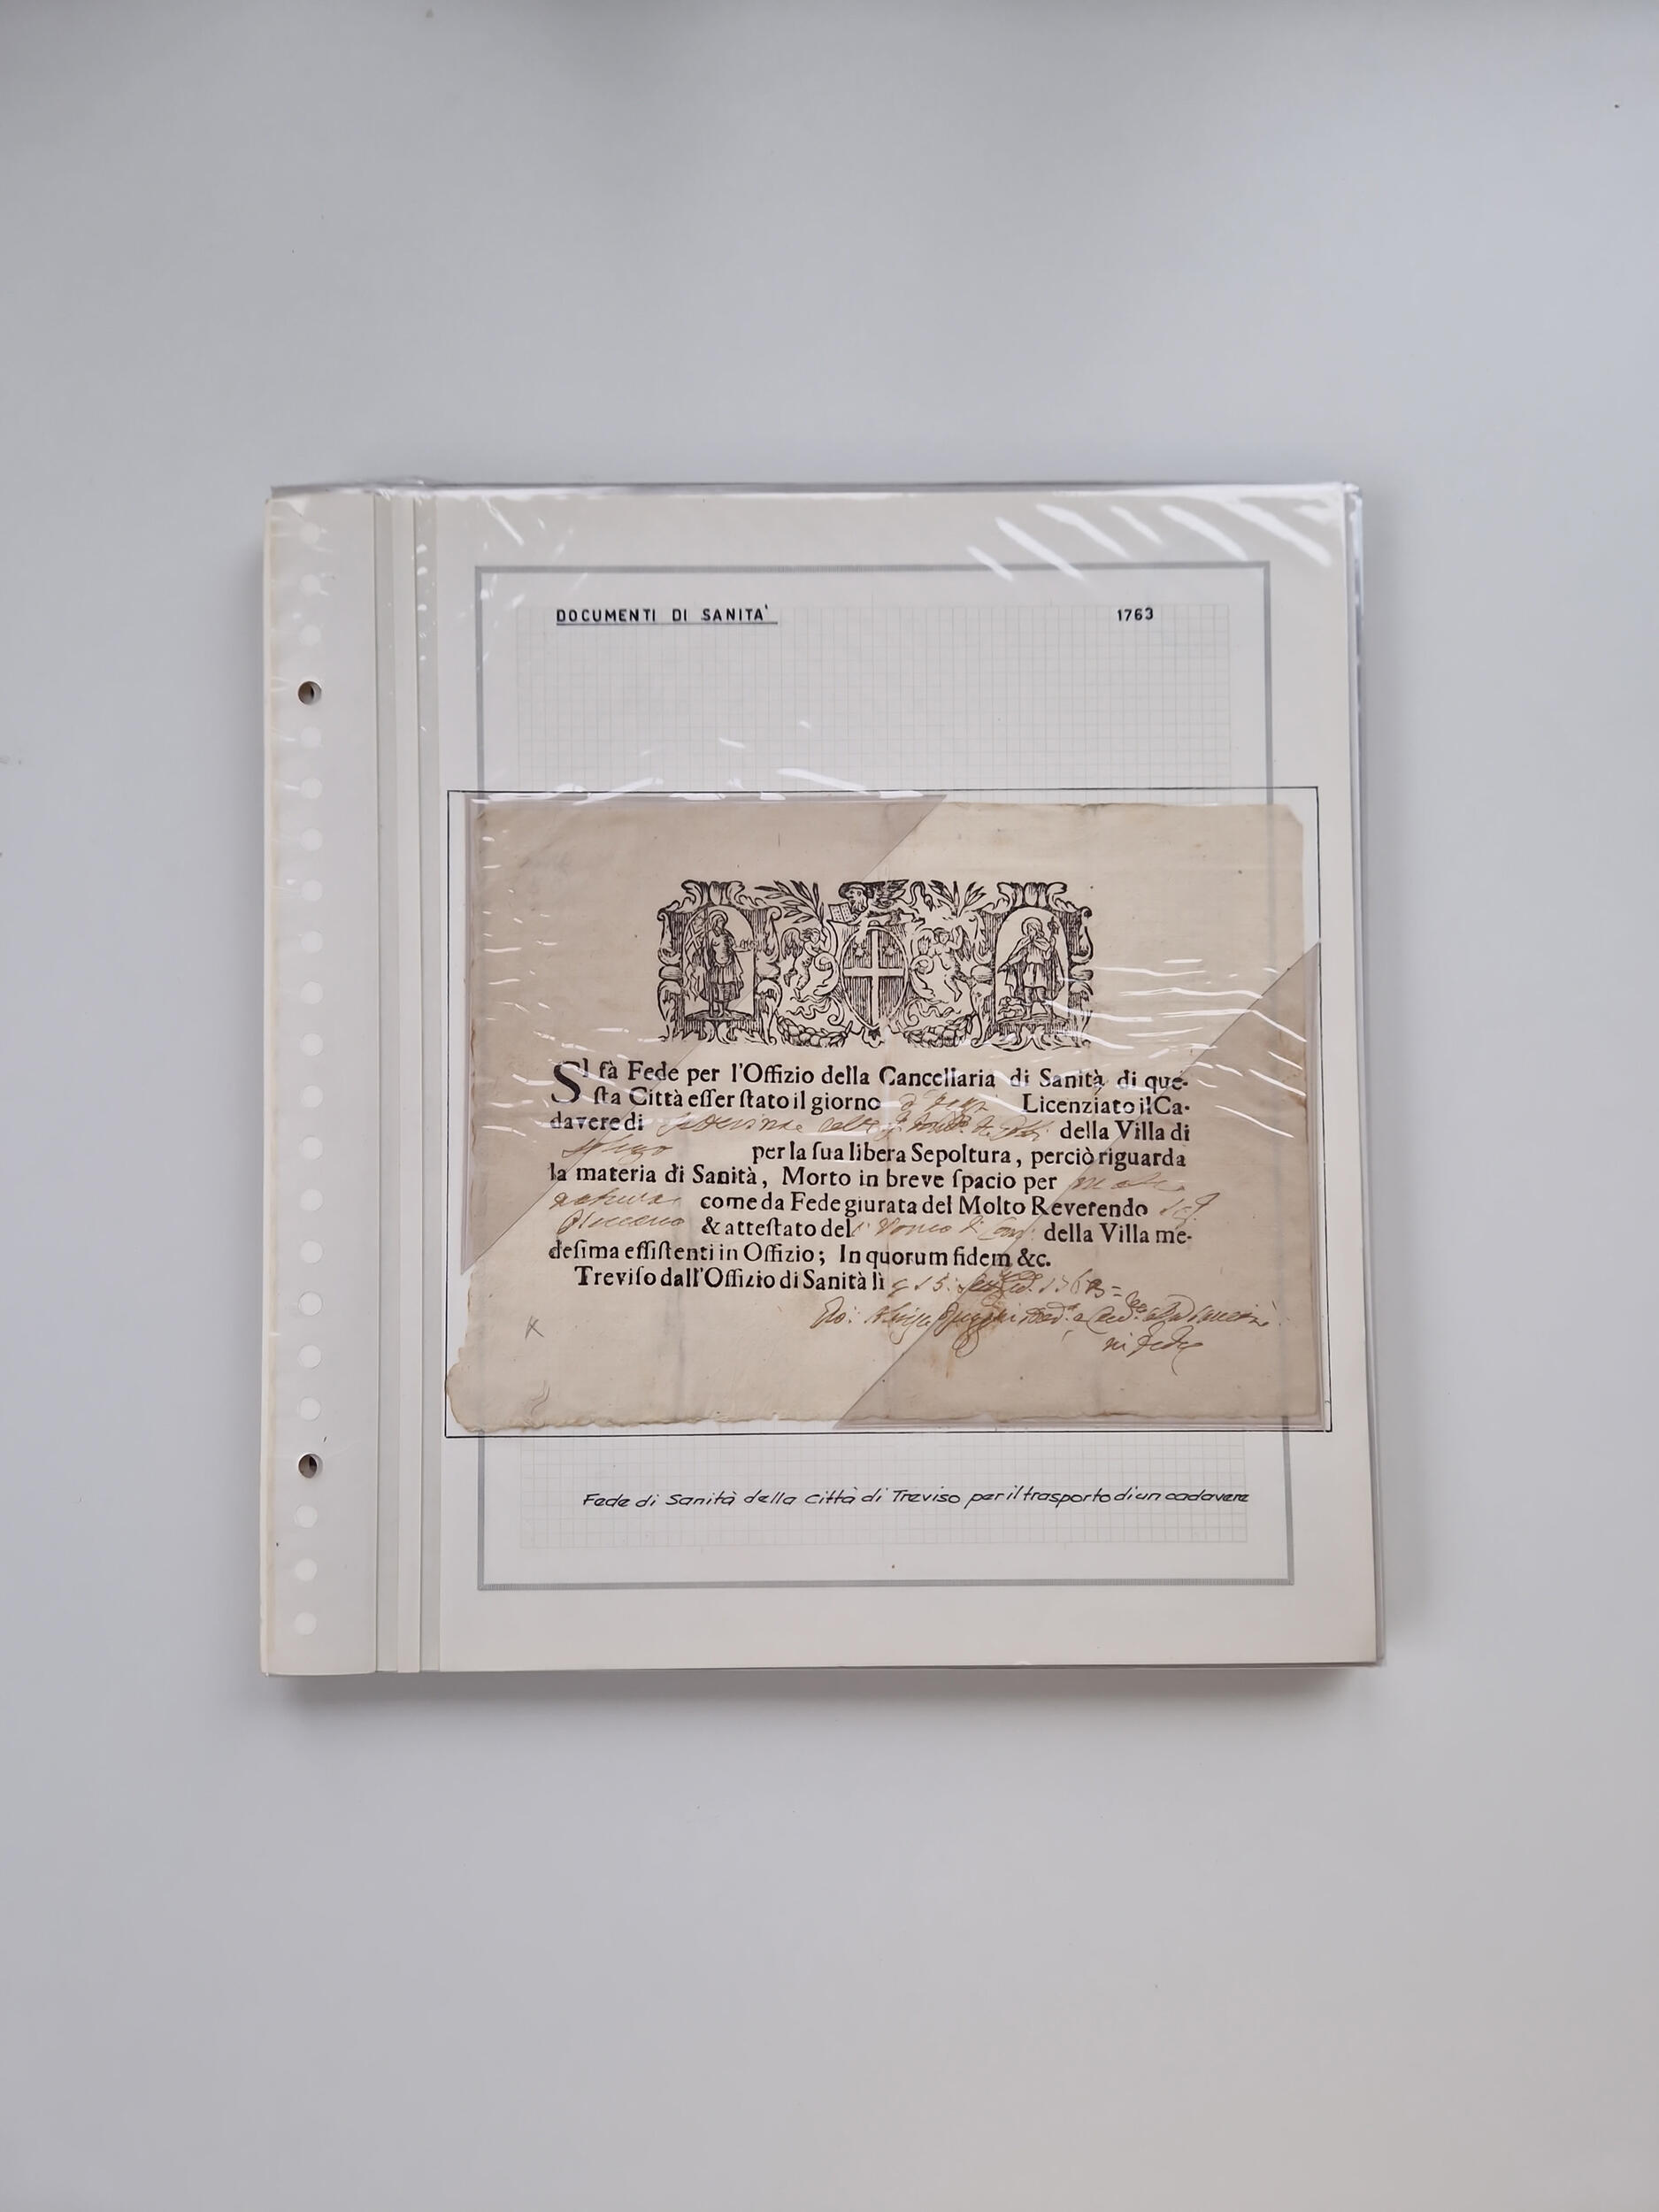 DOCUMENTI DI SANITA' 1763
SI fà Fede per l'Offizio della Cancellaria di Sanità di que-
ſta Città eſſer ſtato il giorno Licenziato il Ca-
davere di della Villa di
per la ſua libera Sepoltura, perciò riguarda
la materia di Sanità, Morto in breve ſpacio per
come da Fede giurata del Molto Reverendo
& atteſtato del della Villa me-
deſima eſſiſtenti in Offizio; In quorum fidem &c.
Treviſo dall'Offizio di Sanità lì
Fede di Sanità della Città di Treviso per il trasporto di un cadavere